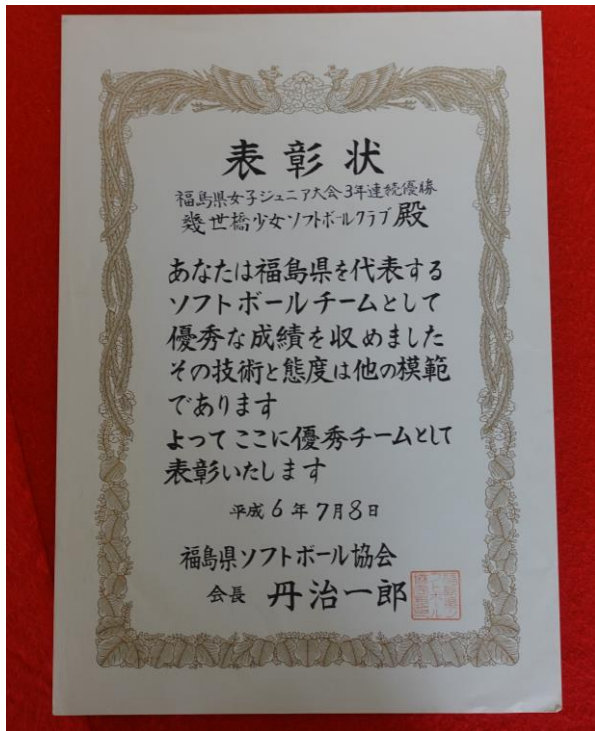 表彰状
福島県女子ジュニア大会3年連続優勝
幾世橋少女ソフトボールクラブ殿
あなたは福島県を代表する
ソフトボールチームとして
優秀な成績を収めました
その技術と態度は他の模範
であります
よってここに優秀チームとして
表彰いたします
平成6年7月8日
福島県ソフトボール協会
会長 丹治一郎